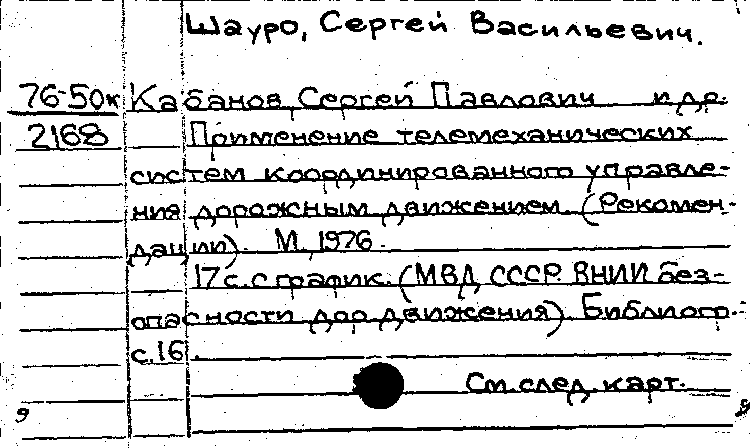 Шауро, Сергей Васильевич.
76-50к Кабанов, Сергей Павлович и др.
2168 Применение телемеханических
систем координированного управле-
ния дорожным движением. (Рекомен-
дации). М., 1976.
17 с. с график. (МВД СССР. ВНИИ без-
опасности дор. движения). Библиогр.:
с. 16.
См. след. карт.
9